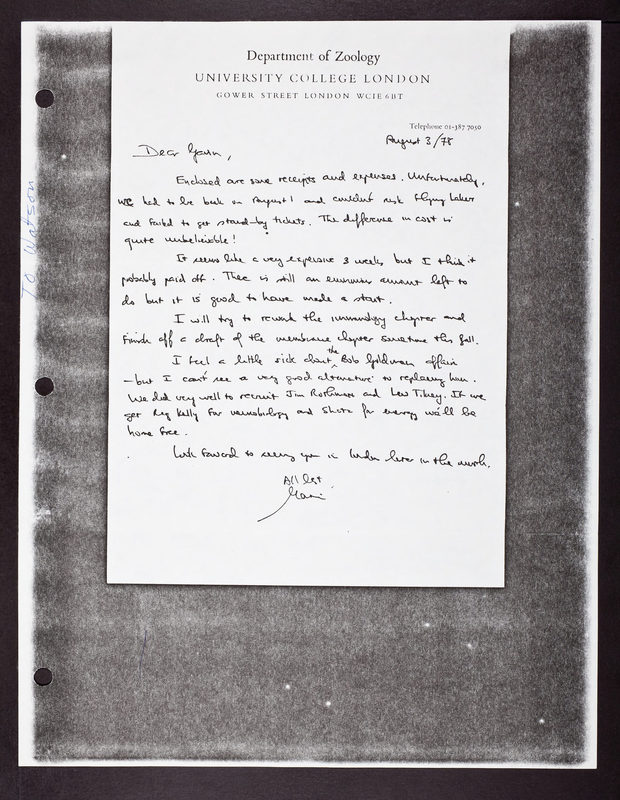 Department of Zoology
UNIVERSITY COLLEGE LONDON
GOWER STREET LONDON WC1E 6BT
Telephone 01-387 7050
August 3/78
To Watson
Dear Gavin,
Enclosed are some receipts and expenses. Unfortunately,
we had to be back on August 1 and couldn't risk flying Laker
and failed to get stand-by tickets. The difference in cost is
quite unbelievable!
It seems like a very expensive 3 weeks but I think it
probably paid off. There is still an enormous amount left to
do but it is good to have made a start.
I will try to rework the immunology chapter and
finish off a draft of the membrane chapter sometime this fall.
I feel a little sick about the Bob Goldman affair
– but I can't see a very good alternative to replacing him.
We did very well to recruit Jim Rothman and Lew Tilney. If we
get Reg Kelly for neurobiology and Shatz for energy we'll be
home free.
Look forward to seeing you in London later in the month.
All best